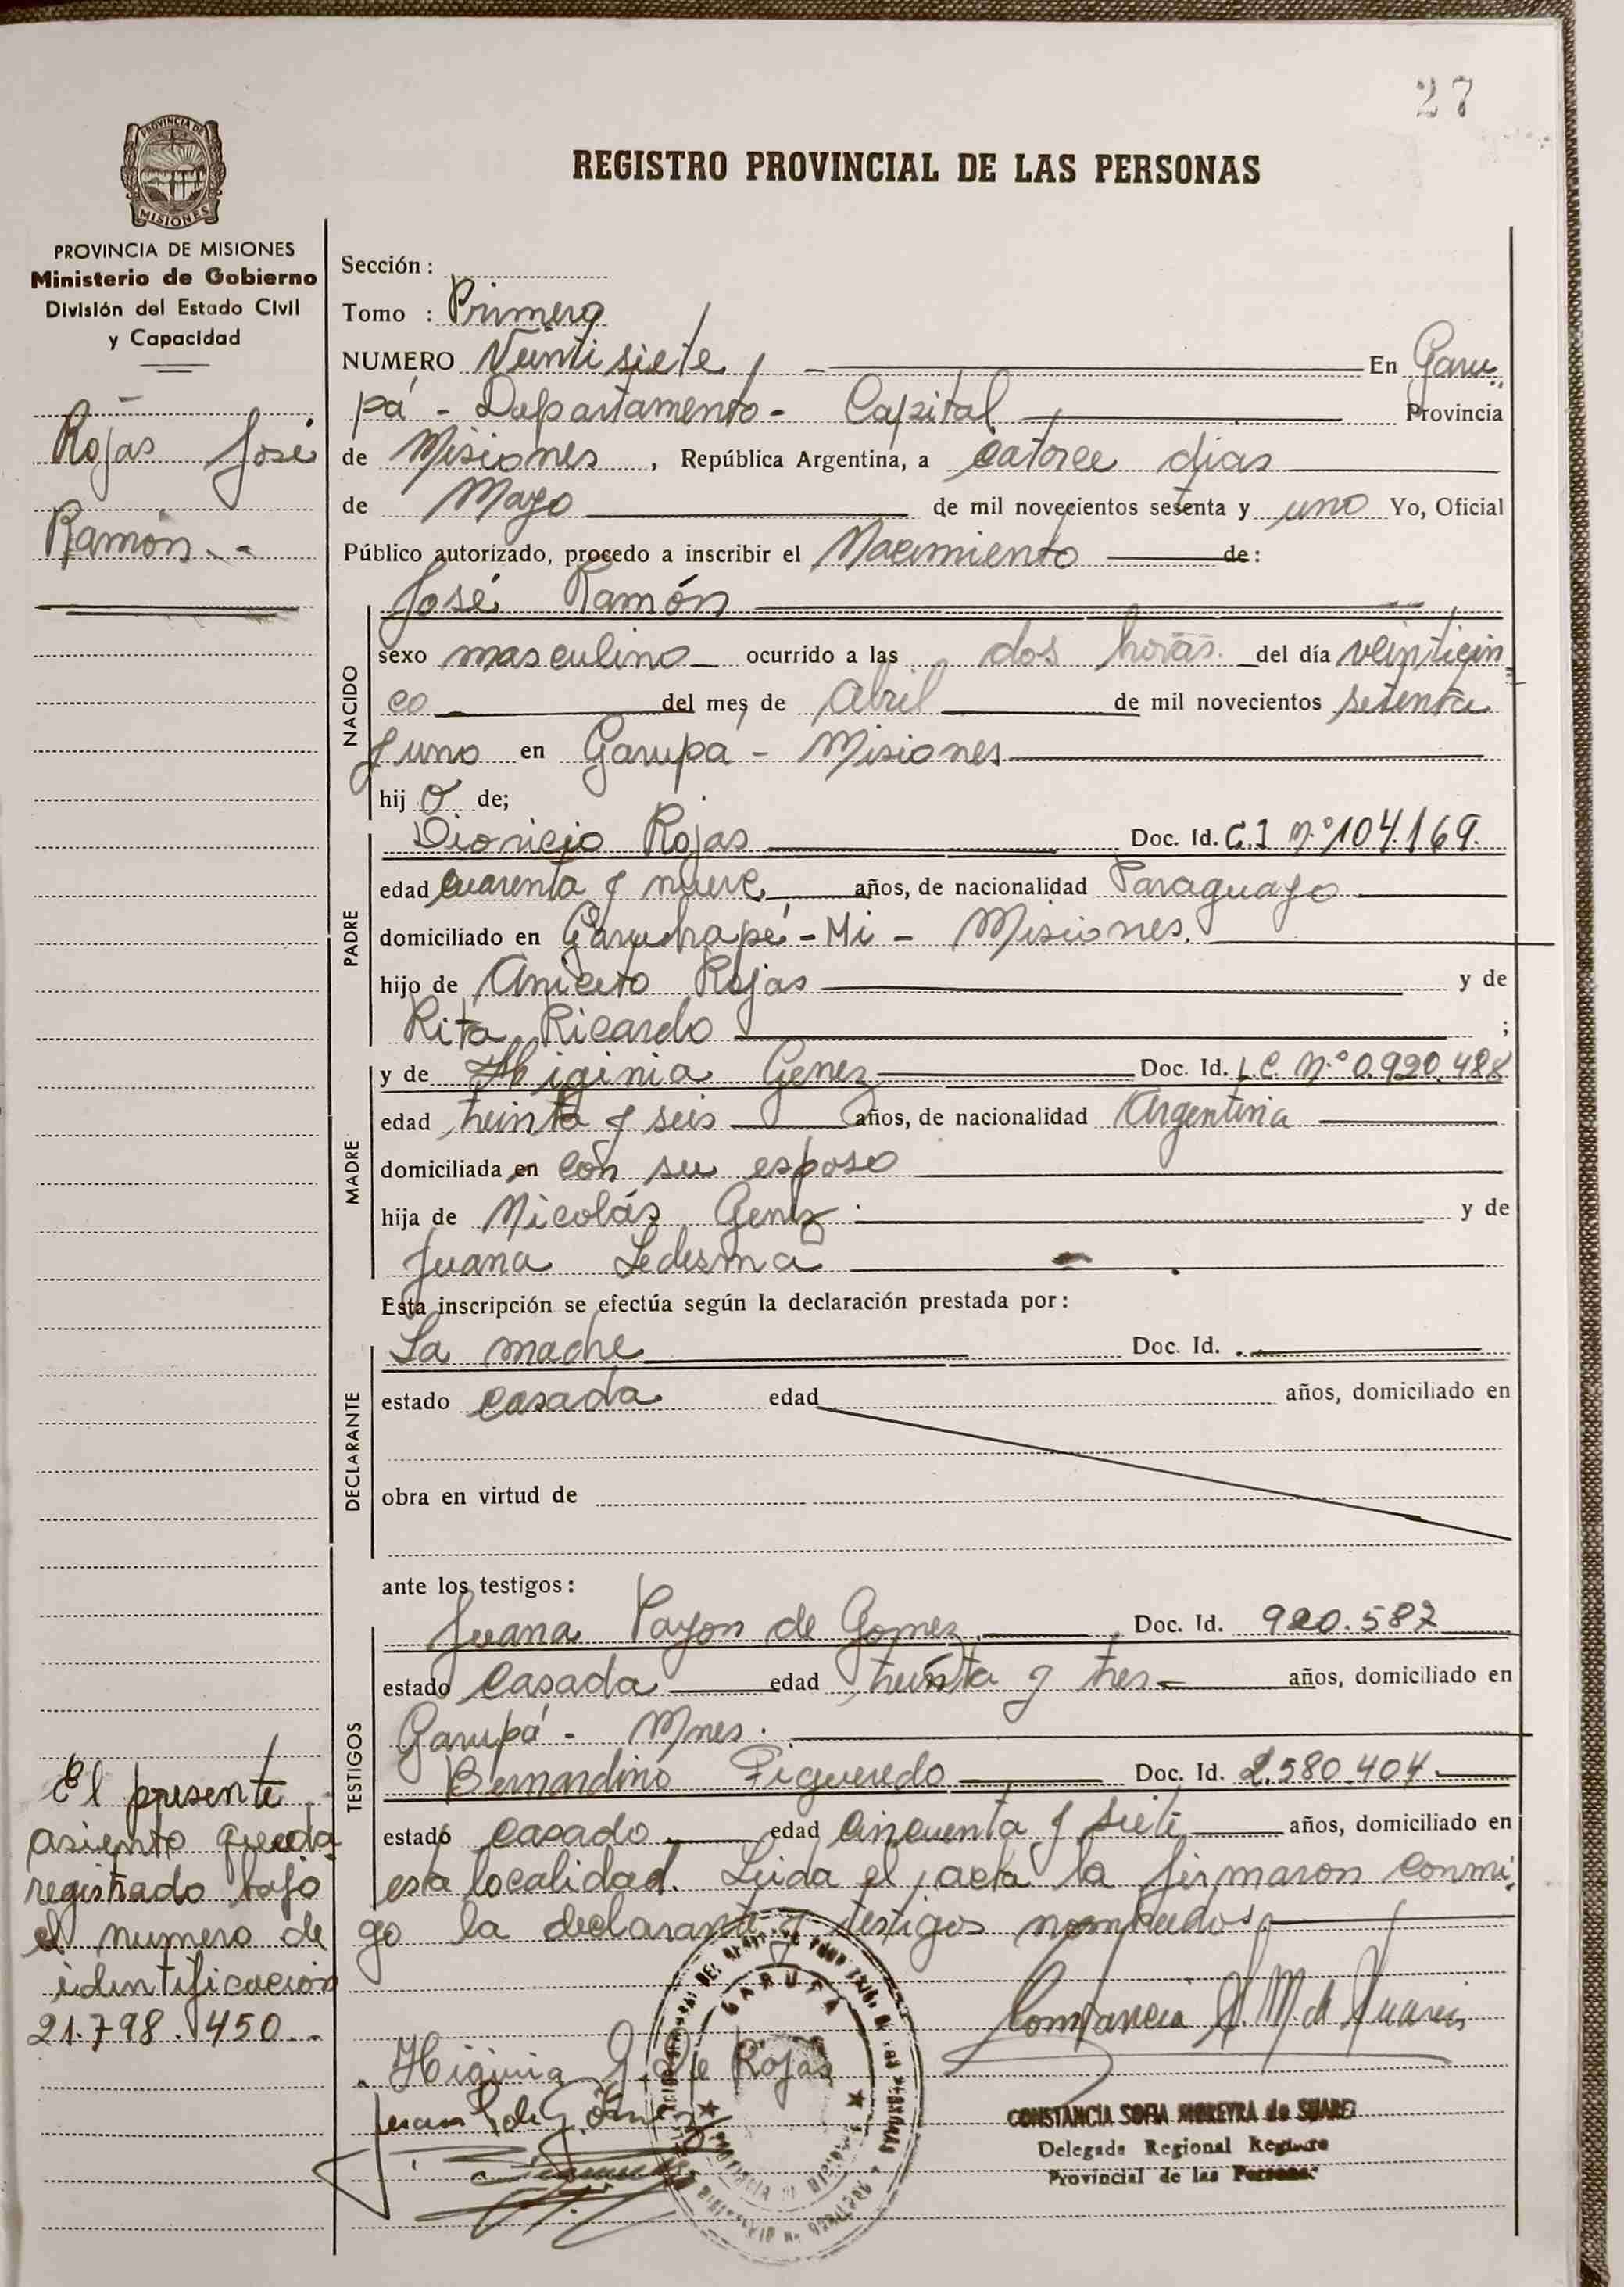 27
PROVINCIA DE
MISIONES
REGISTRO PROVINCIAL DE LAS PERSONAS
PROVINCIA DE MISIONES
Ministerio de Gobierno
División del Estado Civil
y Capacidad
Rojas José
Ramón.-
Sección:
Tomo : Primero
NUMERO Veintisiete En Garu
pá - Departamento - Capital Provincia
de Misiones, República Argentina, a catorce dias
de Mayo de mil novecientos setenta y uno Yo, Oficial
Público autorizado, procedo a inscribir el Nacimiento de:
José Ramón
NACIDO
sexo masculino ocurrido a las dos horas del día veinticin
co del mes de Abril de mil novecientos setenta
y uno en Garupá - Misiones
hij o de;
PADRE
Dionicio Rojas Doc. Id. C.I nº 104.169.
edad cuarenta y nueve años, de nacionalidad Paraguayo
domiciliado en Garuhapé-Mi - Misiones.
hijo de Aniceto Rojas y de
Rita Ricardo ;
MADRE
y de Higinia Genez Doc. Id. L.C. Nº 0.920.488
edad treinta y seis años, de nacionalidad Argentina
domiciliada en con su esposo
hija de Nicolás Genez y de
Juana Ledesma
Esta inscripción se efectúa según la declaración prestada por:
DECLARANTE
La madre Doc. Id.
estado casada edad años, domiciliado en
obra en virtud de
ante los testigos:
TESTIGOS
Juana Payon de Gomez Doc. Id. 920.587
estado Casada edad treinta y tres años, domiciliado en
Garupá - Mnes.
Bernardino Figueredo Doc. Id. 2.580.404
estado casado edad cincuenta y siete años, domiciliado en
esta localidad. Leida el acta la firmaron conmi
go la declarante y testigos nombrados
El presente
asiento queda
registrado bajo
el numero de
identificación
21.798.450.-
GARUPA
Constancia S. M. de Suarez
Higinia G. de Rojas
Juana P. de Gómez
CONSTANCIA SOFIA MOREYRA de SUAREZ
Delegada Regional Registro
Provincial de las Personas